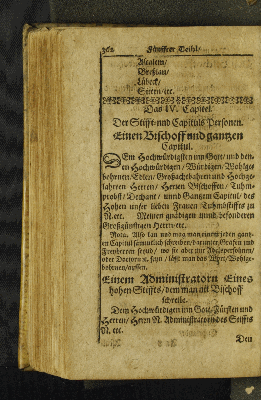 362. Fünffter Theil/
Breßlau/
Lübeck/
Das IV. Capitel.
Der Stifft- und Capituls Personen.
Einen Bischoff und gantzen
Capitul.
DEm Hochwürdigsten inn Gott/ und de-
nen Hochwürdigen/ Würdigen/ Wohlge-
bohrnen/Edlen/ Großachtbahren und Hochge-
lahrten Herren/ Herren Bischoffen/ Tuhm-
probst/ Dechant/ unnd Gantzen Capitul/ des
Hohen unser lieben Frauen Tuhmstiffts zu
N. etc. Meinen gnädigen unnd besonderen
Großgünstigen Herrn/etc.
Nota. Also kan und mag man einem jeden gan-
tzen Capitul sämmtlich schreiben/ darunter Grafen und
Freyherren seynd/ wo sie aber nur Adelspersohnen/
oder Doctores etc. seyn/ läst man das Wort/ Wohlge-
bohrnen/aussen.
Einem Administratorn Eines
hohen Stiffts/ dem man als Bischoff
schreibt.
Dem Hochwürdigen inn Gott/Fürsten und
Herren/ Herrn N. Administratorn des Stiffts
N. etc.
Den